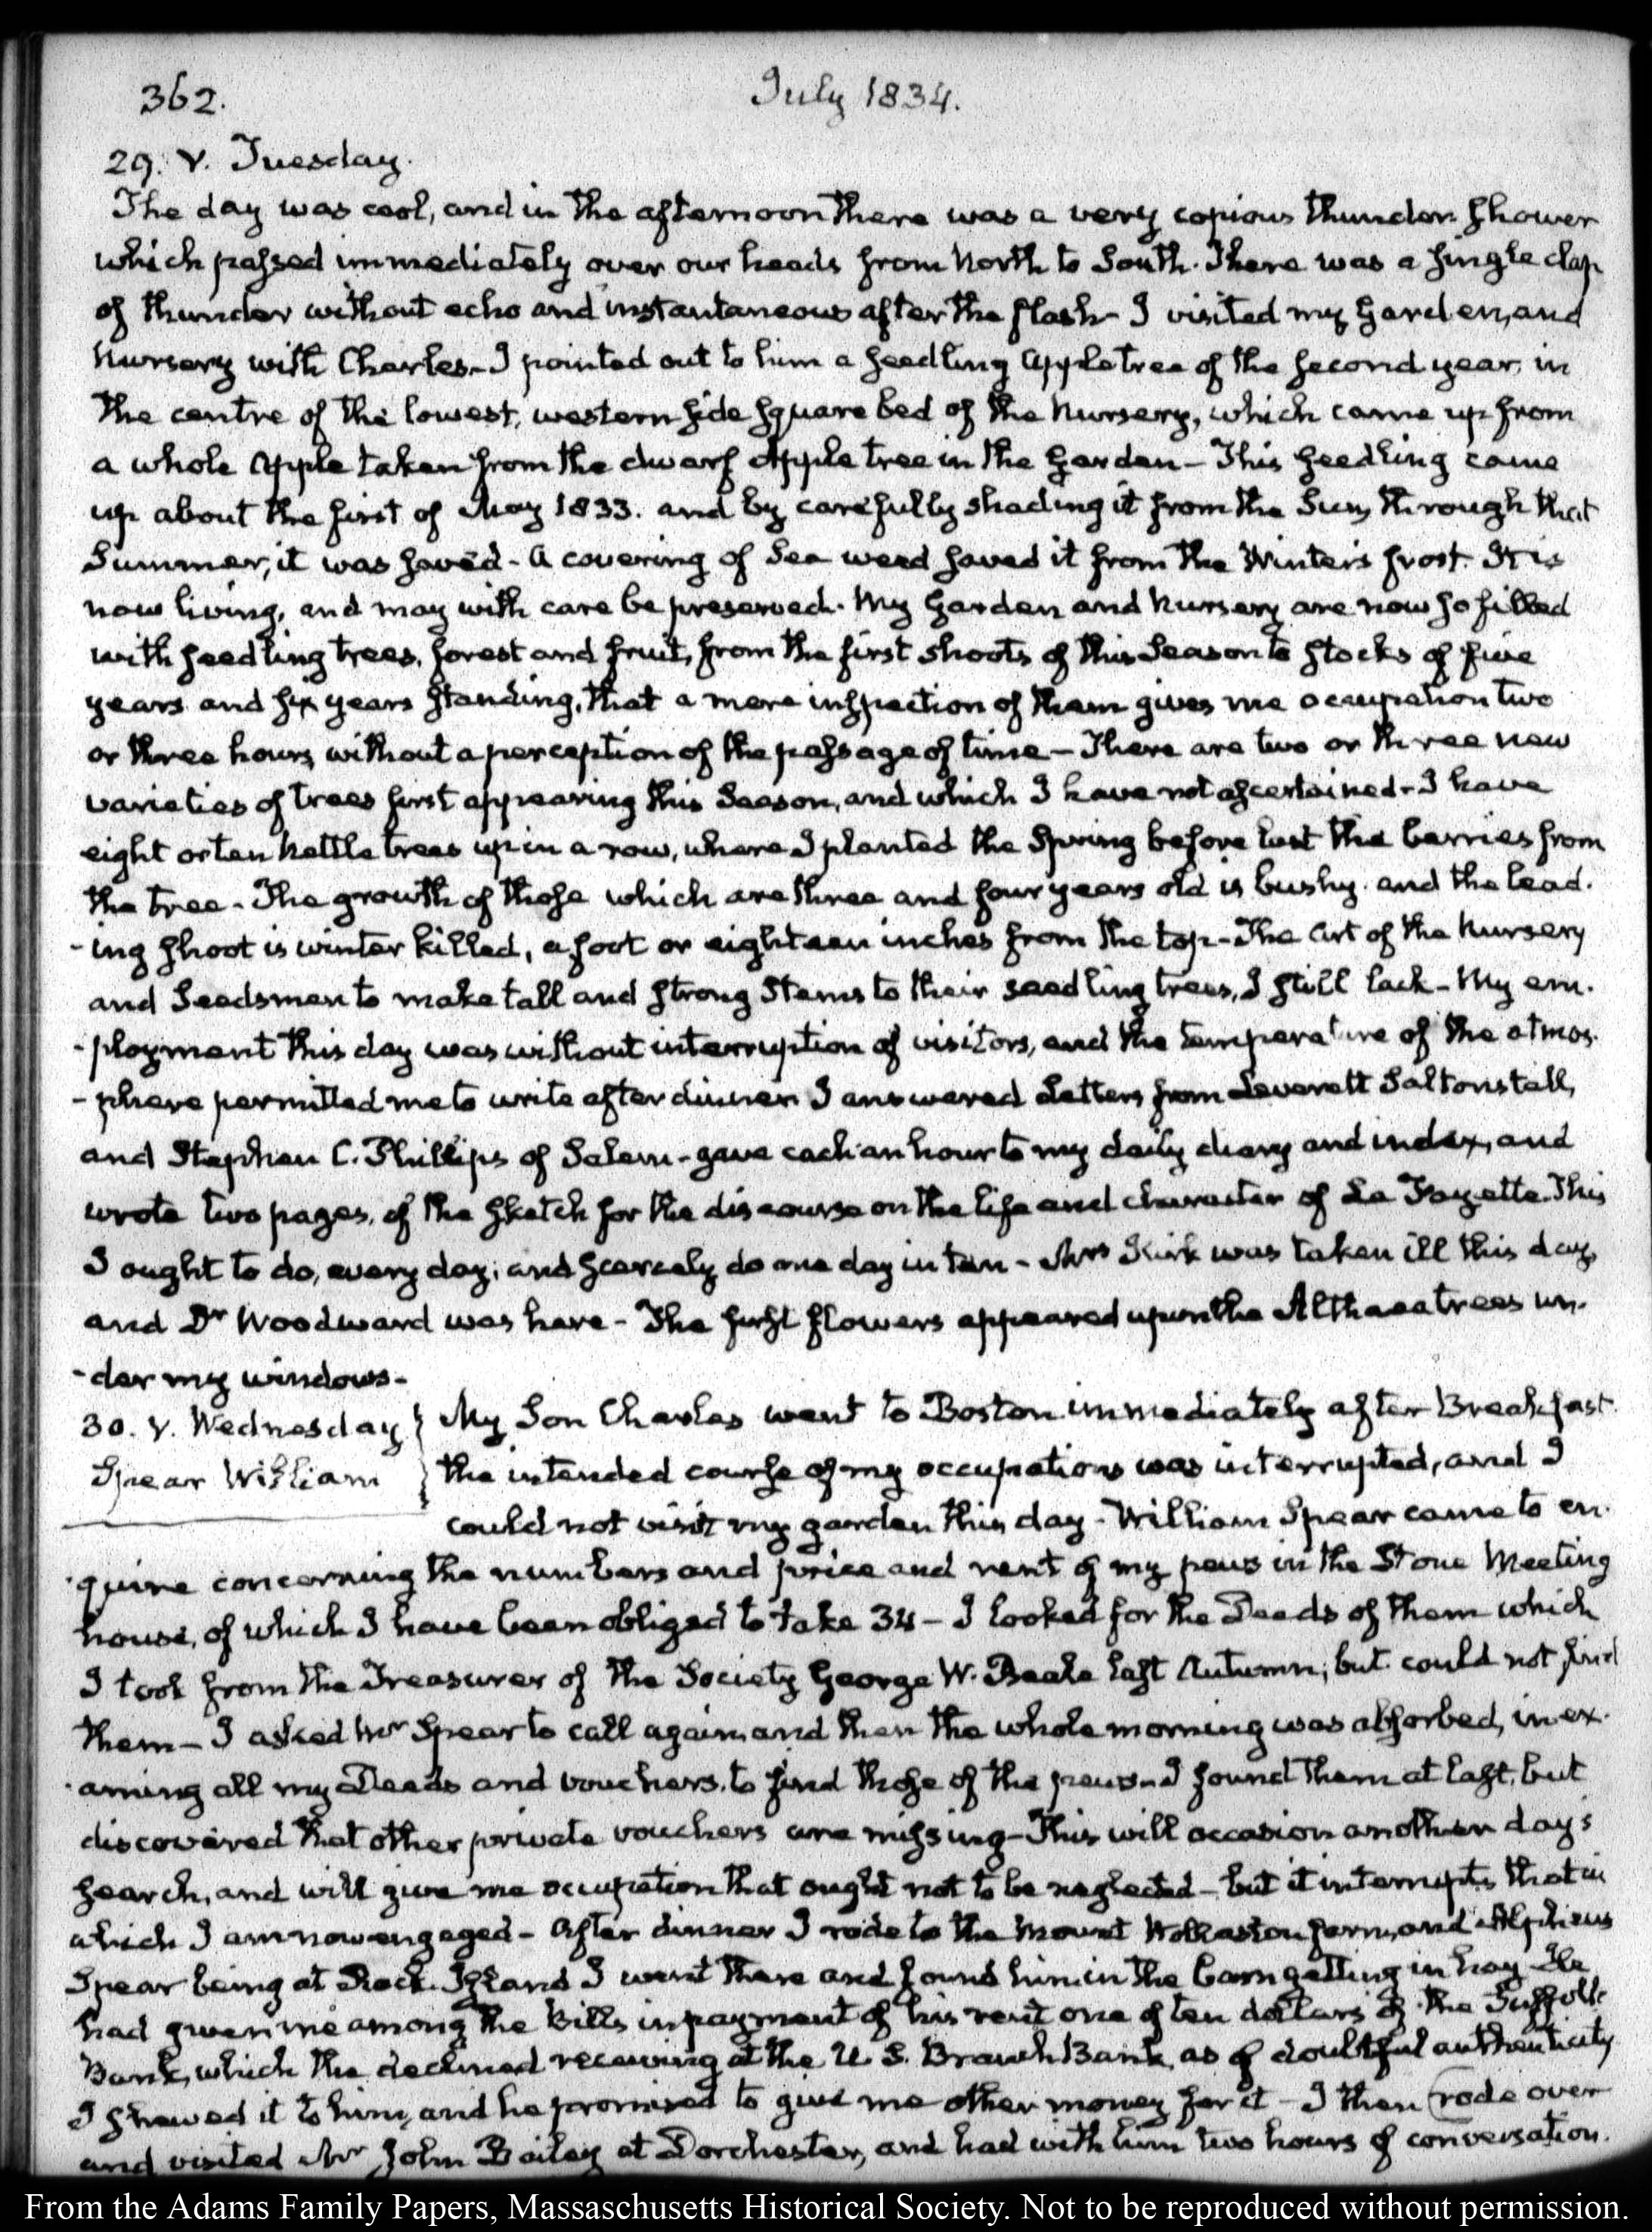 362.
July 1834.
29. V. Tuesday.
The day was cool, and in the afternoon there was a very copious thunder shower
which passed immediately over our heads from North to South. There was a single clap
of thunder without echo and instantaneous after the flash - I visited my Garden, and
Nursery with Charles - I pointed out to him a seedling Apple tree of the second year, in
the centre of the lowest, western side square bed of the Nursery, which came up from
a whole Apple taken from the dwarf Apple tree in the Garden - This seedling came
up about the first of May 1833. and by carefully shading it from the Sun, through that
Summer, it was saved - A covering of Sea weed saved it from the Winter's frost. It is
now living, and may with care be preserved. My Garden and Nursery are now so filled
with seedling trees, forest and fruit, from the first shoots of this Season to stocks of five
years and six years standing, that a mere inspection of them gives me occupation two
or three hours, without a perception of the passage of time - There are two or three new
varieties of trees first appearing this Season, and which I have not ascertained - I have
eight or ten Nettle trees up in a row, where I planted the Spring before last the berries from
the tree - The growth of those which are three and four years old is bushy. and the lead.
-ing shoot is winter killed, a foot or eighteen inches from the top - The Art of the Nursery
and Seedsmen to make tall and strong Stems to their seedling trees, I still lack - My em.
-ployment this day was without interruption of visitors, and the temperature of the atmos.
-phere permitted me to write after dinner I answered Letters from Leverett Saltonstall,
and Stephen C. Phillips of Salem - gave each an hour to my daily diary and index, and
wrote two pages, of the sketch for the discourse on the life and character of La Fayette. This
I ought to do, every day; and scarcely do one day in ten - Mrs Kirk was taken ill this day,
and Dr Woodward was here - The first flowers appeared upon the Althaea trees un.
-der my windows -
30. V. Wednesday } My Son Charles went to Boston immediately after Breakfast.
Spear William } the intended course of my occupations was interrupted, and I
could not visit my garden this day - William Spear came to en.
-quire concerning the numbers and price and rent of my pews in the Stone Meeting
house, of which I have been obliged to take 34 - I looked for the Deeds of them which
I took from the Treasurer of the Society George W. Beale last Autumn; but could not find
them - I asked Mr Spear to call again, and then the whole morning was absorbed, in ex.
-amining all my Deeds and vouchers, to find those of the pews - I found them at last, but
discovered that other private vouchers are missing - This will occasion another day's
search, and will give me occupation that ought not to be neglected - but it interrupts that in
which I am now engaged - After dinner I rode to the Mount Wollaston farm, and Alpheus
Spear being at Rock Island I went there and found him in the barn getting in hay He
had given me among the bills in payment of his rent one of ten dollars of the Suffolk
Bank, which the declined receiving at the U. S. Branch Bank, as of doubtful authenticity
I shewed it to him, and he promised to give me other money for it - I then rode over
and visited Mr John Bailey at Dorchester, and had with him two hours of conversation.
From the Adams Family Papers, Massachusetts Historical Society. Not to be reproduced without permission.